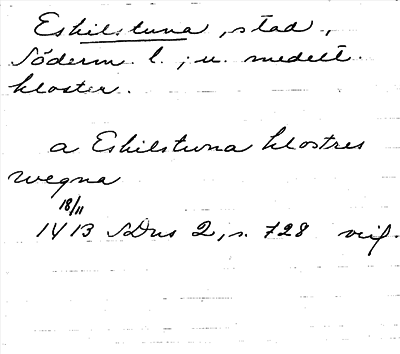 Eskilstuna, stad,
Söderm. l.; u. medelt.
kloster.
a Eskilstuna klostres
wegna
18/11
1413 SDns 2, s. 728